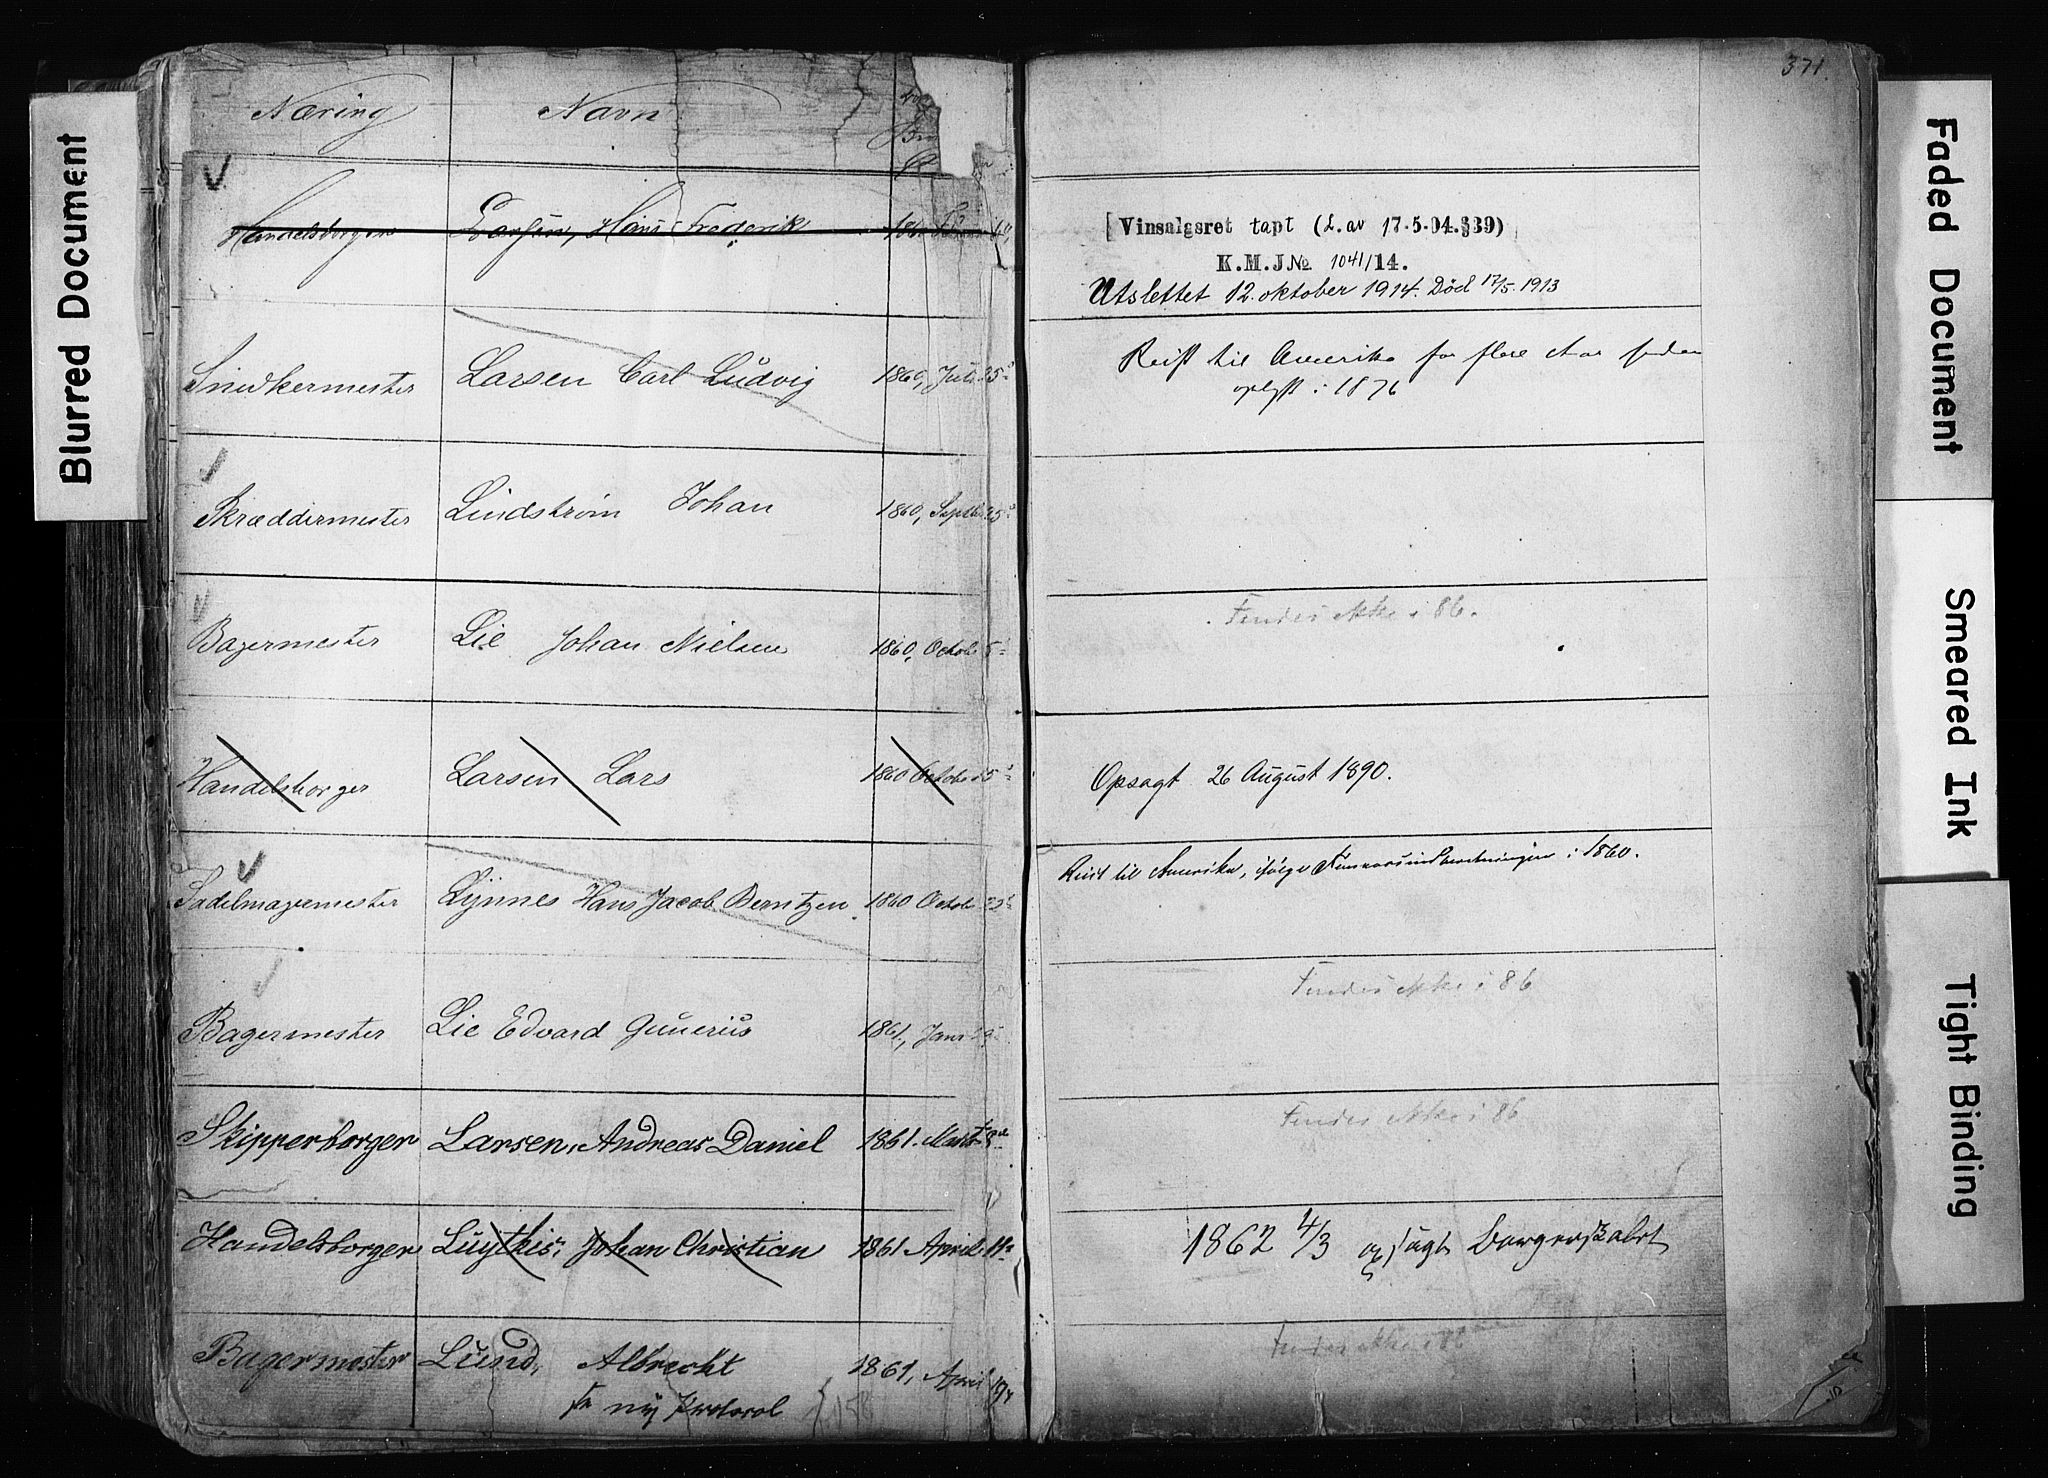 371.
Næring Navn
Handelsborger Larsen, Hans Frederik
[Vinsalgsret tapt (L. av 17-5-04.§39)
K.M.J№ 1041/14.
Utslettet 12. oktober 1914. Død 17/5. 1913
Snedkermester Larsen Carl Ludvig 1860, Juli 25
Reist til Amerika for flere Aar siden
oplyst i 1876
Skræddermester Lindstrøm Johan 1860, Septb 25
Bagermester Lie Johan Nielsen 1860, Octob 5
Findes ikke i 86.
Handelsborger Larsen Lars 1860 Octob
Opsagt 26 August 1890.
Sadelmagermester Lynnes Hans Jacob Berntzen 1860 Octob
Reist til Amerika, ifølge i 1860.
Bagermester Lie Edvard Gunerius 1861, Janr
Findes ikke i 86
Skipperborger Larsen, Andreas Daniel 1861. Marts
Findes ikke i 86
Handelsborger Luytkis, Johan Christian 1861 April 11
1862 4/3 opsagt Borgerskabet
Bagermester Lund, Albrecht 1861, April 19
Findes ikke i 86
ny Protocol 158
Blurred Document
Faded Document
Smeared Ink
Tight Binding